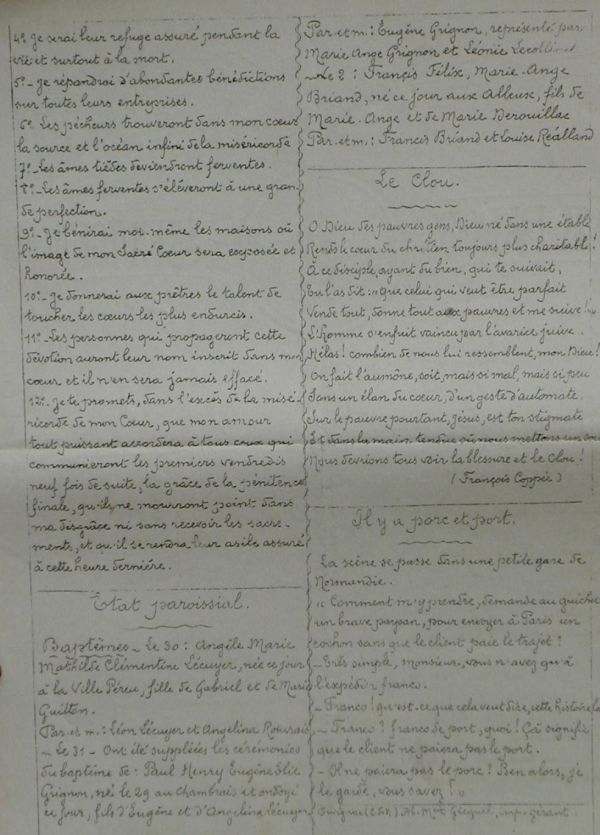 4º Je serai leur refuge assuré pendant la
vie et surtout à la mort.
5º - Je répandrai d'abondantes bénédictions
sur toutes leurs entreprises.
6º Les pécheurs trouveront dans mon cœur
la source et l'océan infini de la miséricorde
7º - Les âmes tièdes deviendront ferventes.
8º - Les âmes ferventes s'élèveront à une gran
de perfection.
9º - Je bénirai moi-même les maisons où
l'image de mon Sacré Cœur sera exposée et
honorée.
10º - Je donnerai aux prêtres le talent de
toucher les cœurs les plus endurcis.
11º - Les personnes qui propageront cette
dévotion auront leur nom inscrit dans mon
cœur et il n'en sera jamais effacé.
12º - Je te promets, dans l'excès de la misé-
ricorde de mon Cœur, que mon amour
tout puissant accordera à tous ceux qui
communieront les premiers vendredis
neuf fois de suite, la grâce de la pénitence
finale, qu'ils ne mourront point dans
ma disgrâce ni sans recevoir les sacre-
ments, et qu'il se rendra leur asile assuré
à cette heure dernière.
Etat paroissial.
Baptêmes - Le 30 : Angèle Marie
Mathilde Clémentine Lécuyer, née ce jour
à la Ville Péreu, fille de Gabriel et de Marie
Guitton.
Par. et m. : Léon Lécuyer et Angelina
- Le 31 - Ont été suppléées les cérémonies
du baptême de : Paul Henry Eugène Elie
Grignon, né le 29 au Chambrais et ondoyé
ce jour, fils d'Eugène et d'Angelina Lécuyer
Par. et m. : Eugène Grignon, représenté par
Marie Ange Grignon et Léonie
- Le 2 : Francis Félix, Marie-Ange
Briand, né ce jour aux Alleux, fils de
Marie-Ange et de Marie Derouillac
Par. et m. : Francis Briand et Louise Réalland
Le Clou.
O Dieu des pauvres gens, Dieu né dans une étable
Rends le cœur du chrétien toujours plus charitable !
À ce disciple, ayant du bien, qui te suivait,
Tu l'as dit : "Que celui qui veut être parfait
Vende tout, donne tout aux pauvres et me suive !"
L'homme s'enfuit vaincu par l'avarice juive.
Hélas ! combien de nous lui ressemblent, mon Dieu !
On fait l'aumône, soit, mais si mal, mais si peu
Sans un élan du cœur, d'un geste d'automate.
Sur le pauvre pourtant, Jésus, est ton stigmate
Et dans la main tendue où nous mettons un sou
Nous devrions tous voir la blessure et le Clou !
(François Coppée)
Il y a porc et port.
La scène se passe dans une petite gare de
Normandie.
" Comment m'y prendre, demande au guichet
un brave paysan, pour envoyer à Paris un
cochon sans que le client paie le trajet ?
- Très simple, monsieur, vous n'avez qu'à
l'expédir franco.
- Franco ! qu'est-ce que cela veut dire, cette histoire là
- Franco ? franco de port, quoi ! Ça signifie
que le client ne paiera pas le port.
- Il ne paiera pas le porc ? Ben alors, je
le garde, vous savez ! "
gérant.